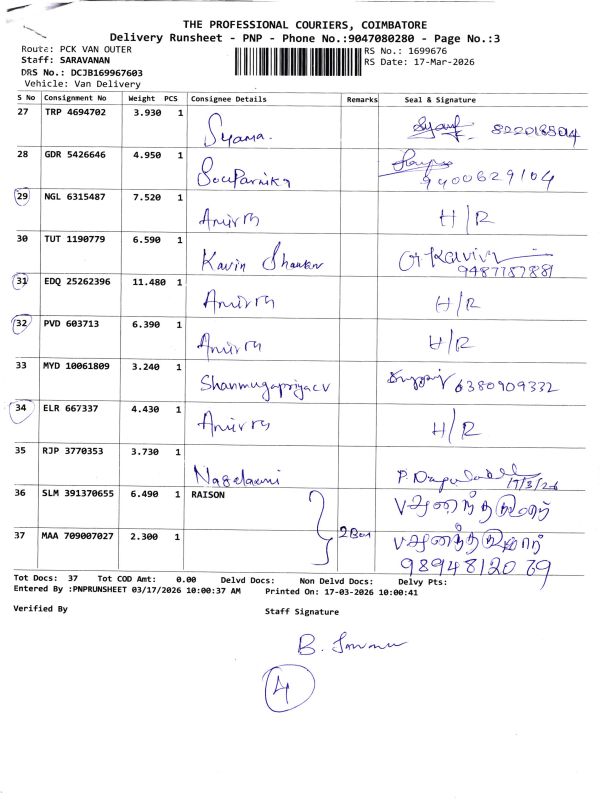 THE PROFESSIONAL COURIERS, COIMBATORE
Delivery Runsheet - PNP - Phone No.:9047080280 - Page No.:3
Route: PCK VAN OUTER
RS No.: 1699676
Staff: SARAVANAN
RS Date: 17-Mar-2026
DRS No.: DCJB169967603
Vehicle: Van Delivery
S No Consignment No Weight PCS Consignee Details Remarks Seal & Signature
27 TRP 4694702 3.930 1 Syama.
28 GDR 5426646 4.950 1 Souparnika 9400629104
29 NGL 6315487 7.520 1 H/R
30 TUT 1190779 6.590 1 Kavin 9487757881
31 EDQ 25262396 11.480 1 H/R
32 PVD 603713 6.390 1 H/R
33 MYD 10061809 3.240 1 Shanmugapriya 6380909332
34 ELR 667337 4.430 1 H/R
35 RJP 3770353 3.730 1 17/3/26
36 SLM 391370655 6.490 1 RAISON
37 MAA 709007027 2.300 1 2 Box
9894812079
Tot Docs: 37 Tot COD Amt: 0.00 Delvd Docs: Non Delvd Docs: Delvy Pts:
Entered By :PNPRUNSHEET 03/17/2026 10:00:37 AM Printed On: 17-03-2026 10:00:41
Verified By Staff Signature
B.
4